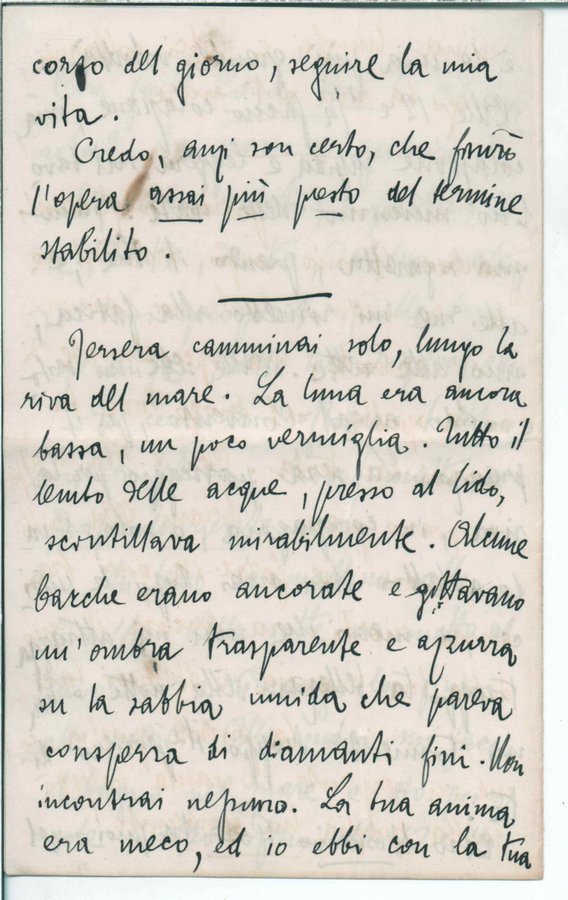 corso del giorno, seguire la mia
vita.
Credo, anzi son certo, che finirò
l'opera assai più presto del termine
stabilito.
Jersera camminai solo, lungo la
riva del mare. La luna era ancora
bassa, un poco vermiglia. Tutto il
lembo delle acque, presso al lido,
scintillava mirabilmente. Alcune
barche erano ancorate e gittavano
un'ombra trasparente e azzurra
su la sabbia umida che pareva
conspersa di diamanti fini. Non
incontrai nessuno. La tua anima
era meco, ed io ebbi con la tua